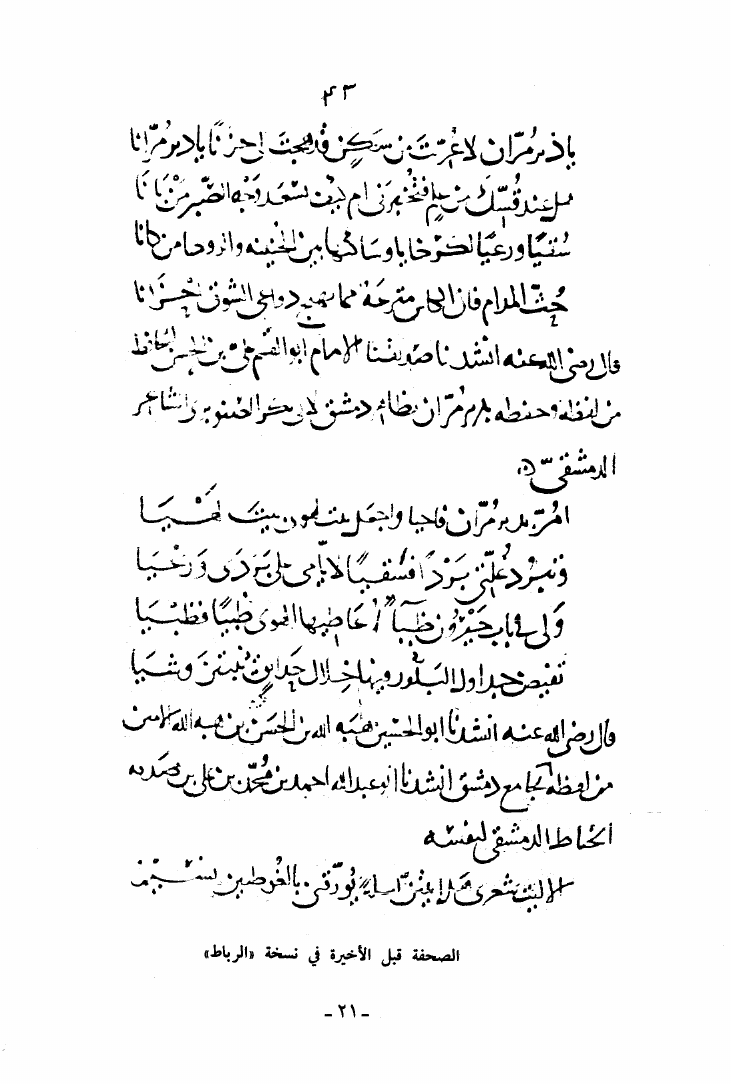 ٤٣
يا دير مران لا عريت من سكن قد هجت لي حزنا يا دير مرانا
هل عند قسك من علم فيخبرني ام كيف يسعد وجه الصبر من بانا
سقيا ورعيا لكرخايا وساكنها بين الجنينه والروحا من كانا
حث المدام فان الكاس مترعة مما يهيج دواعي الشوق احزانا
قال رضي الله عنه انشدنا صديقنا الامام ابو القسم علي بن الحسن الحافظ
من لفظه وحفظه بدير مران بظاهر دمشق لابي بكر الصنوبري الشاعر
الدمشقي
امر بدير مران فاحيا واجعل بيت لهوي بيت لهيا
وتبرد غلتي بردا فسقيا لايامي على بردى ورعيا
ولي في باب جيرون ظبآء اعاطيها الهوى ظبيا فظبيا
تفيض جداول البلور فيها خلال حدايق ينبتن وشيا
قال رضي الله عنه انشدنا ابو الحسين هبه الله بن الحسن بن هبه الله الامين
من لفظه بجامع دمشق انشدنا ابو عبد الله احمد بن محمد بن علي بن صدقه
الخياط الدمشقي لنفسه
الا ليت شعري هل ابيتن ليلة يورقني بالغوطتين نسيم
الصحفة قبل الأخيرة في نسخة «الرباط»
- ٢١ -